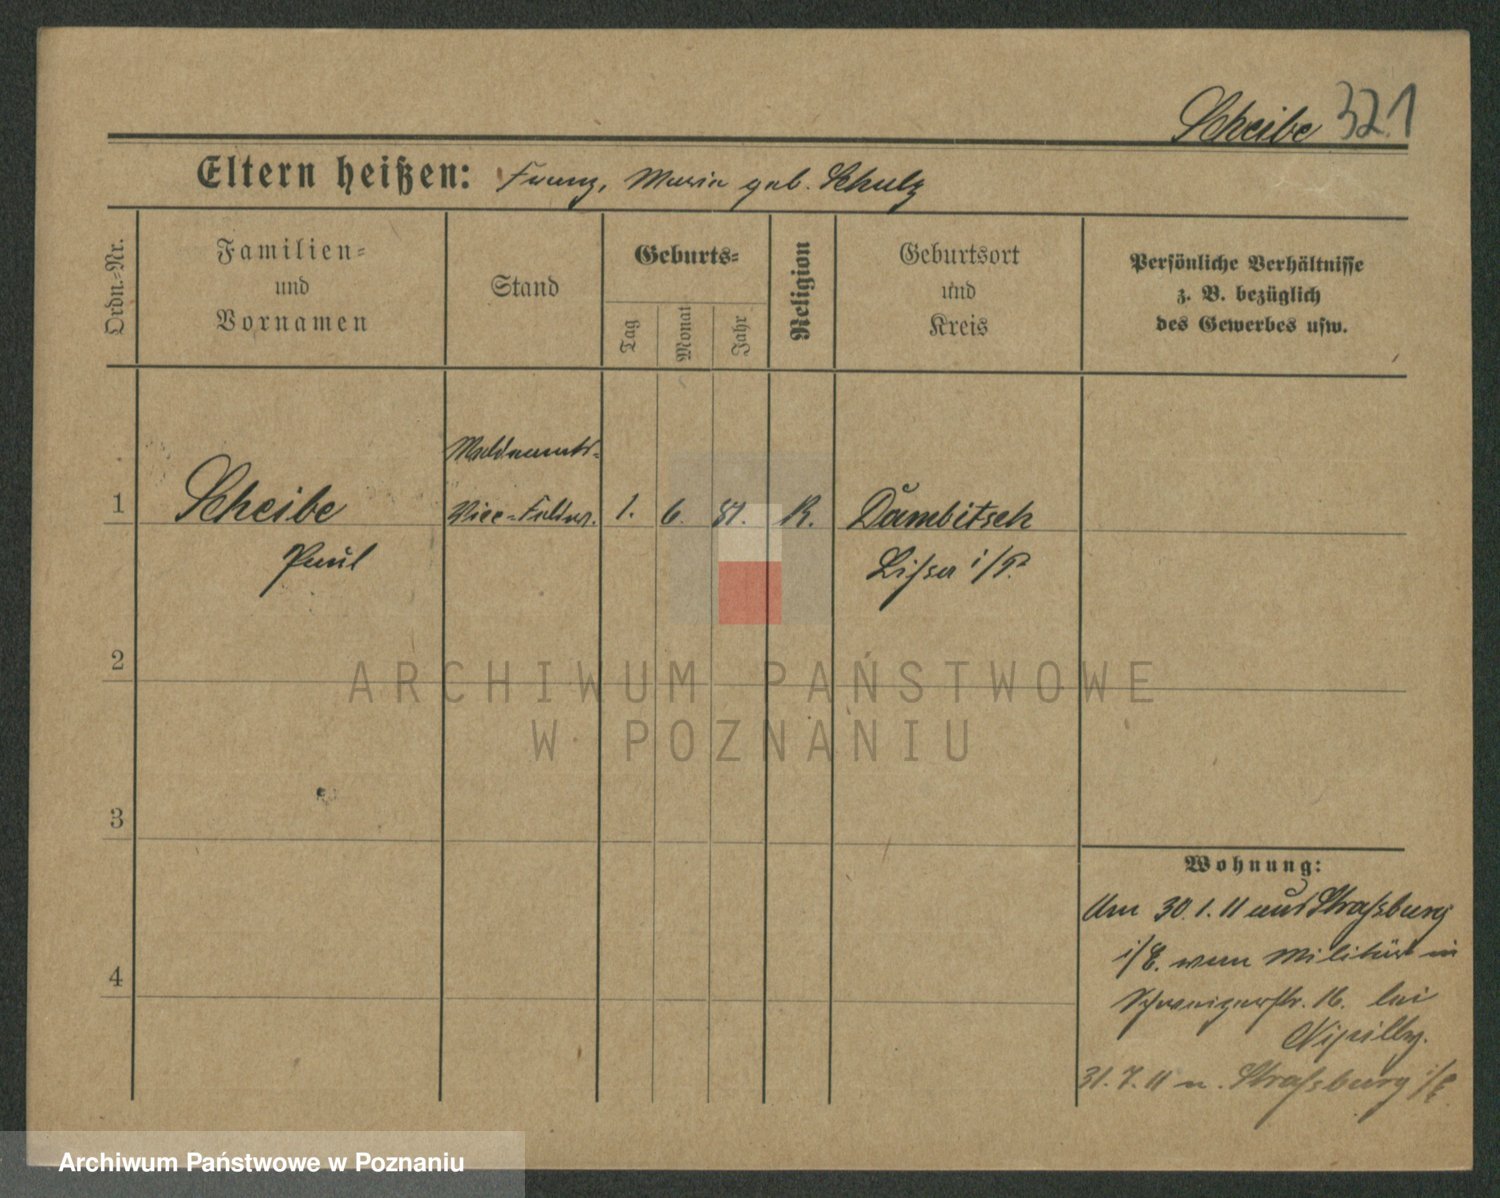 Scheibe 321
Eltern heißen: Franz, Maria geb. Schulz
Ordn.-Nr.
Familien-
und
Vornamen
Stand
Geburts-
Tag
Monat
Jahr
Religion
Geburtsort
und
Kreis
Persönliche Verhältnisse
z. B. bezüglich
des Gewerbes usw.
Meldeamts-
1 Scheibe Vice-Feldw. 1. 6. 81. K. Dambitsch
Paul Lissa i/P.
2
3
4
Wohnung:
Am 30.1.11 aus Strassburg
i/E. vom Militär in
16. bei
31.7.11 n. Strassburg i/E.
ARCHIWUM PAŃSTWOWE
W POZNANIU
Archiwum Państwowe w Poznaniu